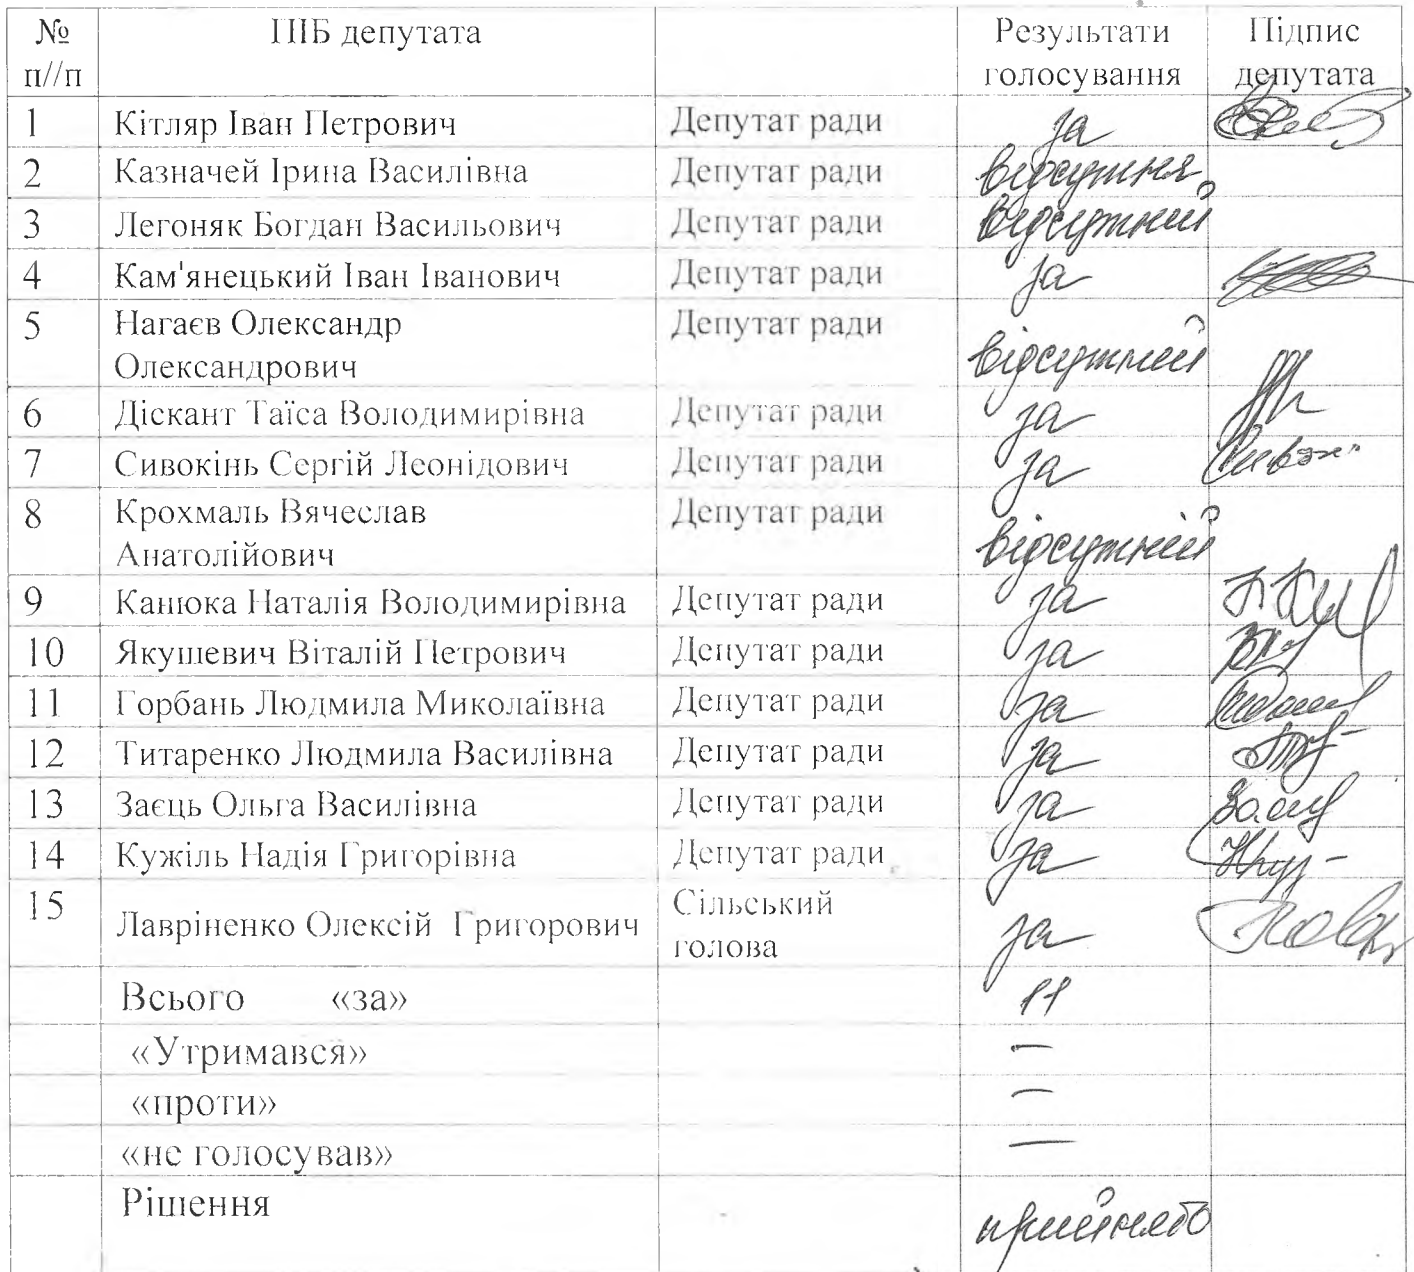 № ПІБ депутата Результати Підпис
п//п голосування депутата
1 Кітляр Іван Петрович Депутат ради за
2 Казначей Ірина Василівна Депутат ради відсутня
3 Легоняк Богдан Васильович Депутат ради відсутній
4 Кам'янецький Іван Іванович Депутат ради за
5 Нагаєв Олександр Депутат ради
Олександрович відсутній
6 Діскант Таїса Володимирівна Депутат ради за
7 Сивокінь Сергій Леонідович Депутат ради за
8 Крохмаль Вячеслав Депутат ради
Анатолійович відсутній
9 Канюка Наталія Володимирівна Депутат ради за
10 Якушевич Віталій Петрович Депутат ради за
11 Горбань Людмила Миколаївна Депутат ради за
12 Титаренко Людмила Василівна Депутат ради за
13 Заєць Ольга Василівна Депутат ради за
14 Кужіль Надія Григорівна Депутат ради за
15 Лавріненко Олексій Григорович Сільський
голова за
Всього «за» 11
«Утримався» –
«проти» –
«не голосував» –
Рішення прийнято